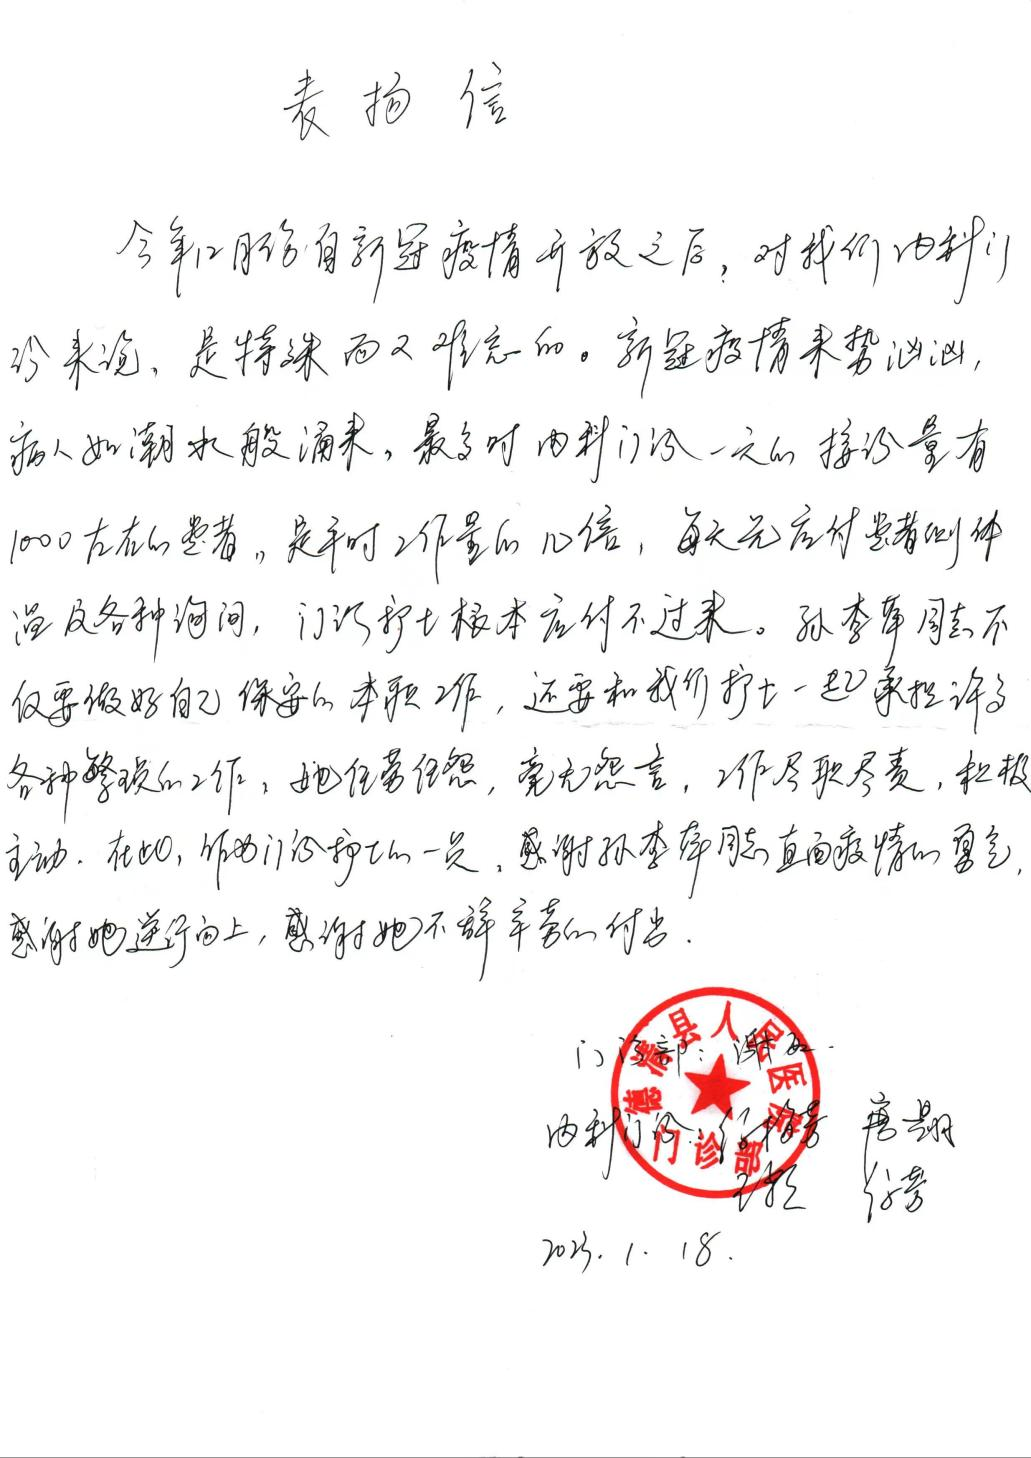 表扬信
今年12月份自新冠疫情开放之后，对我们内科门
诊来说，是特殊而又难忘的。新冠疫情来势汹汹，
病人如潮水般涌来，最多时内科门诊一天的接诊量有
1000左右的患者，是平时工作量的几倍，每天光应付患者测体
温及各种询问，门诊护士根本应付不过来。孙李萍同志不
仅要做好自己保安的本职工作，还要和我们护士一起承担许多
各种繁琐的工作，她任劳任怨，毫无怨言，工作尽职尽责，积极
主动．在此，作为门诊护士的一员，感谢孙李萍同志直面疫情的勇气，
感谢她逆行而上，感谢她不辞辛劳的付出．
德清县人民医院
门诊部：谢
内科门诊：
门诊部
2023.1.18.